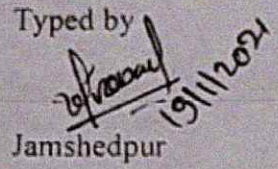 Typed by
19/11/2021
Jamshedpur